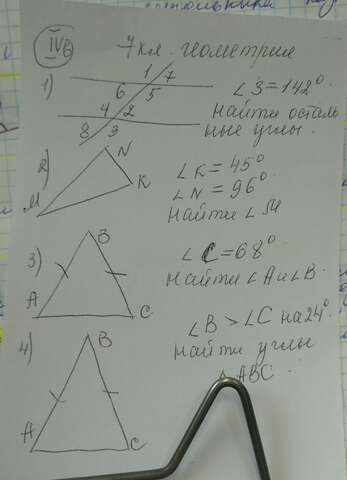 IVв 7 кл. геометрия
1) 1 7
6 5
4 2
8 3
∠3=142°
Найти осталь
ные углы.
2) N
K
M
∠K=45°
∠N=96°
Найти ∠M
3) B
A C
∠C=68°
Найти ∠A и ∠B.
4) B
A C
∠B > ∠C на 24°.
Найти углы
△ABC.